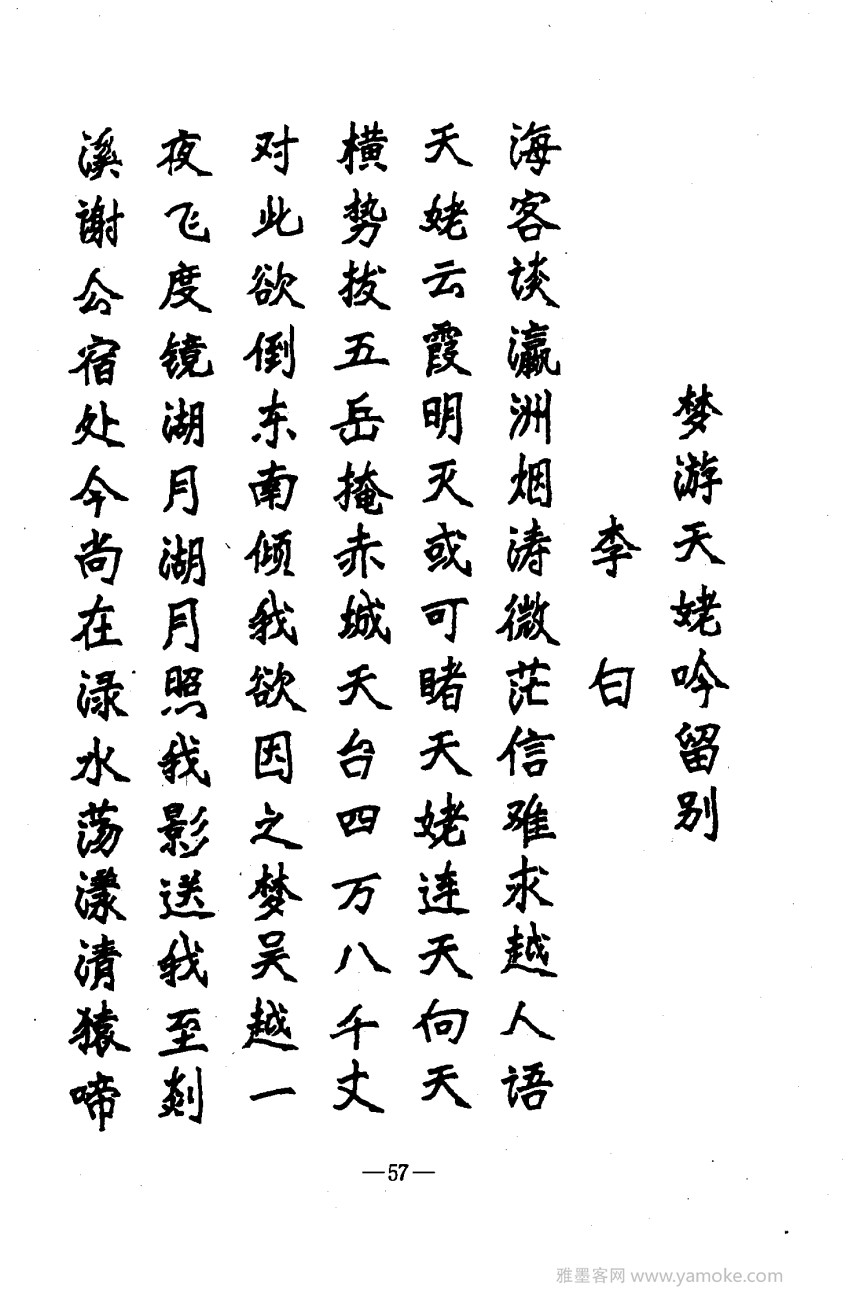 梦游天姥吟留别
李白
海客谈瀛洲烟涛微茫信难求越人语
天姥云霞明灭或可睹天姥连天向天
横势拔五岳掩赤城天台四万八千丈
对此欲倒东南倾我欲因之梦吴越一
夜飞度镜湖月湖月照我影送我至剡
溪谢公宿处今尚在渌水荡漾清猿啼
—57—
雅墨客网 www.yamoke.com